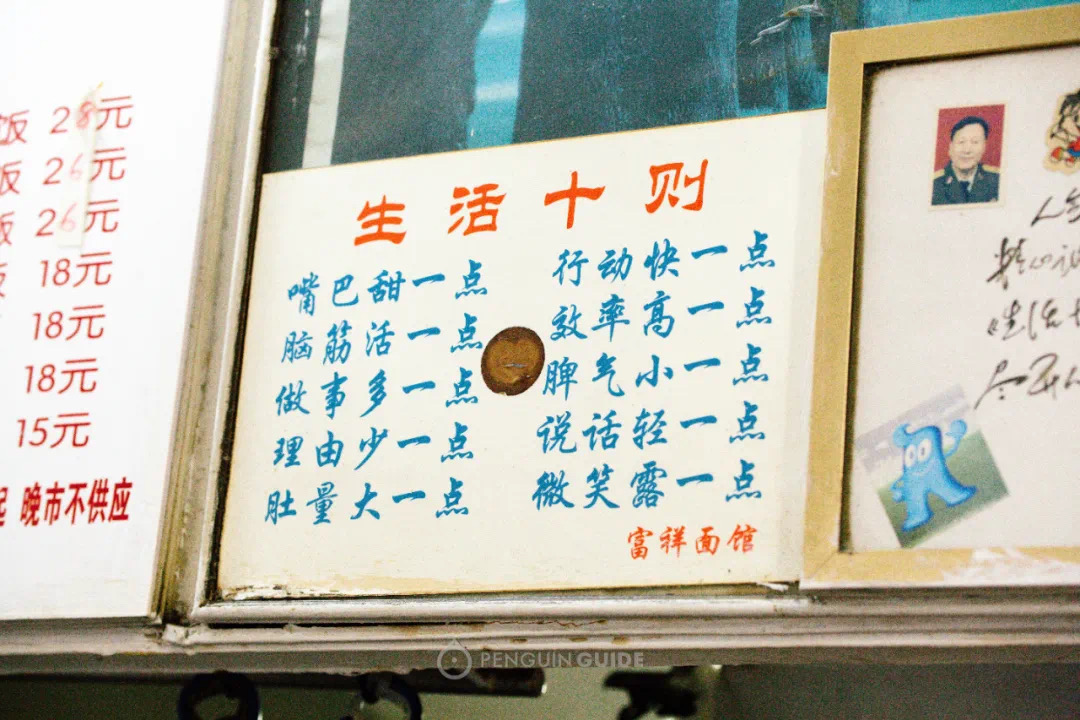 饭 28元
饭 26元
26元
18元
18元
18元
15元
晚市不供应
生活十则
嘴巴甜一点
脑筋活一点
做事多一点
理由少一点
肚量大一点
行动快一点
效率高一点
脾气小一点
说话轻一点
微笑露一点
富祥面馆
PENGUIN GUIDE